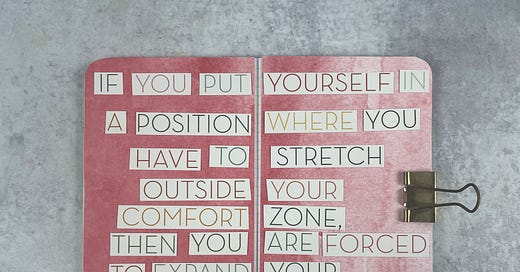 IF YOU PUT YOURSELF IN
A POSITION WHERE YOU
HAVE TO STRETCH
OUTSIDE YOUR
COMFORT ZONE,
THEN YOU ARE FORCED
TO EXPAND YOUR